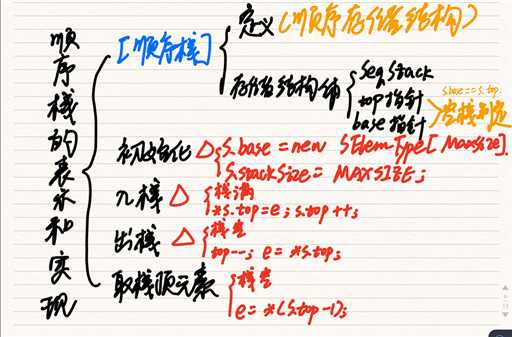 顺序栈的表示和实现
[顺序栈]
定义(顺序存储结构)
存储结构
SeqStack
top指针
base指针
s.base==s.top.
空栈判定
初始化 △
S.base=new SElemType[Maxsize].
S.stackSize=MAXSIZE;
入栈 △
栈满
*s.top=e; s.top++;
出栈 △
栈空
top--; e=*s.top;
取栈顶元素
栈空
e=*(s.top-1);